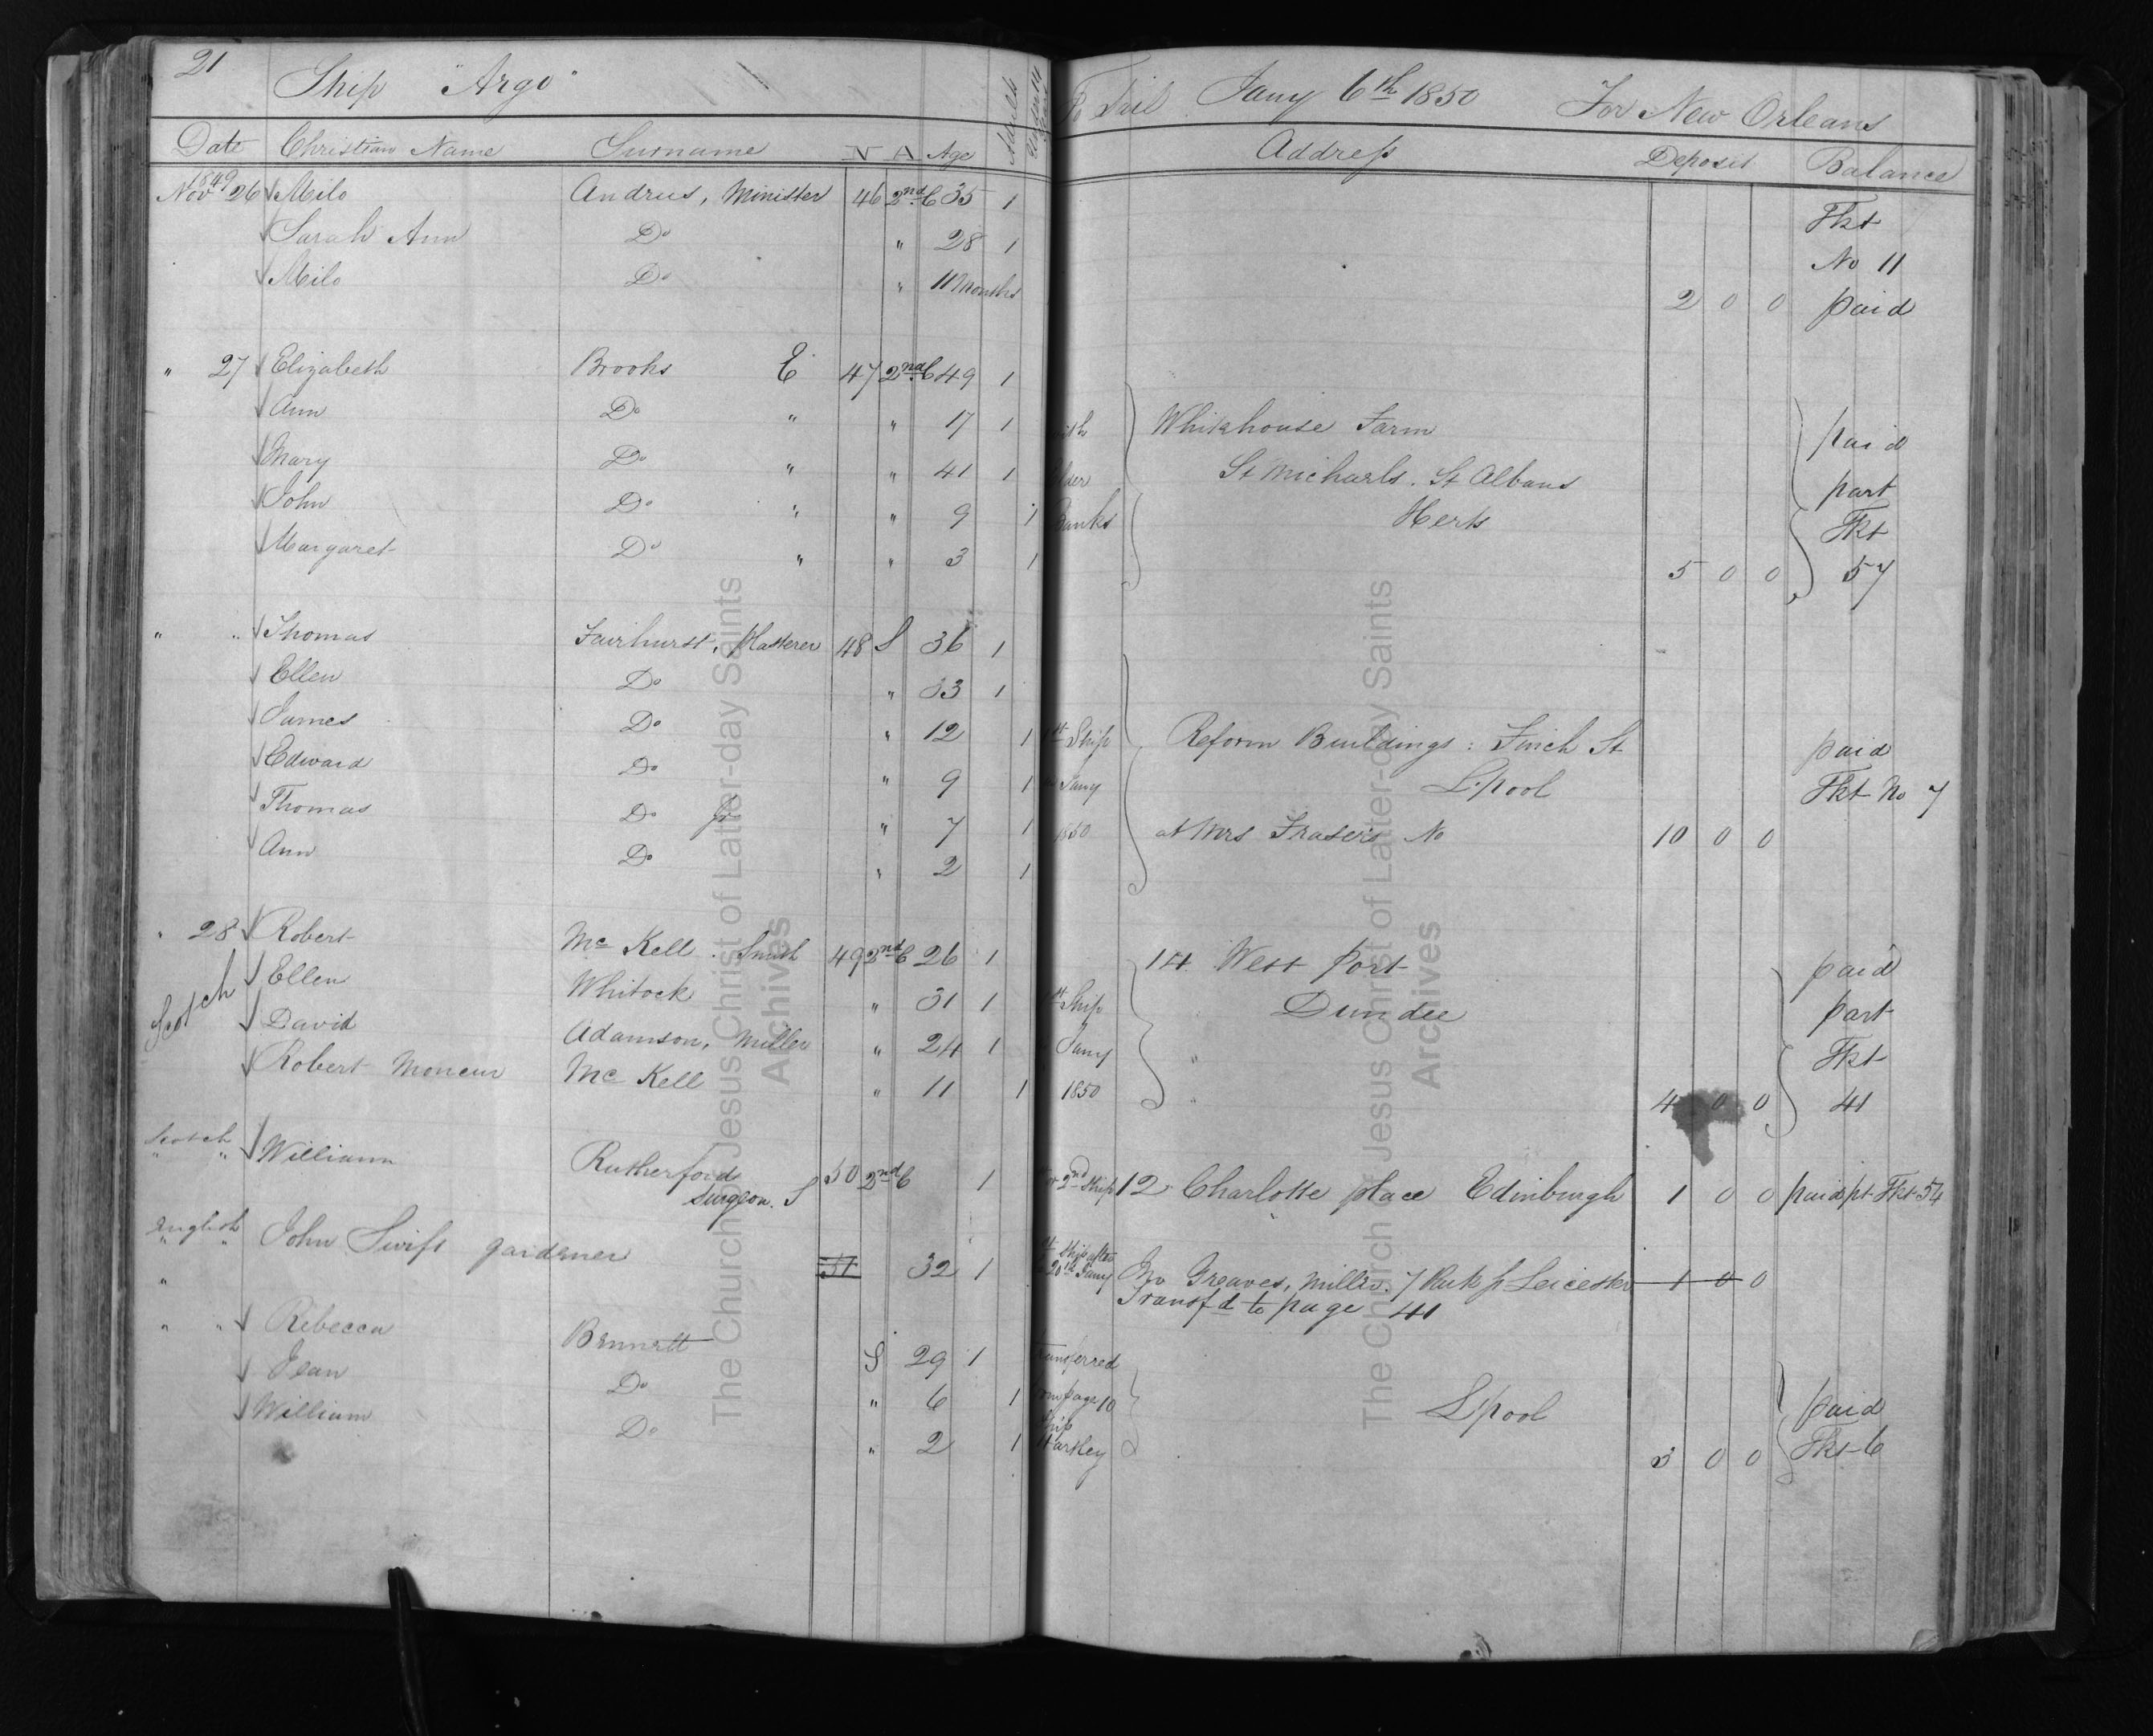 21 Ship "Argo" To Sail Jany 6th 1850 For New Orleans
Date Christian Name Surname N A Age Adults Address Deposit Balance
1849
Nov 26 Milo Andrus, Minister 46 2nd C 35 1 Tkt
Sarah Ann Do " 28 1 No 11
Milo Do " 11 Months 2 0 0 paid
" 27 Elizabeth Brooks E 47 2nd C 49 1
Ann Do " " 17 1 with Whitehouse Farm paid
Mary Do " " 41 1 Elder St Michaels. St Albans part
John Do " " 9 1 Banks Herts Tkt
Margaret Do " " 3 1 5 0 0 57
" " Thomas Fairhurst, Plasterer 48 S 36 1
Ellen Do " 33 1
James Do " 12 1 Ship Reform Buildings: Finch St paid
Edward Do " 9 1 Jany L'pool Tkt No 7
Thomas Do Jr " 7 1 1850 at Mrs Frasers No 10 0 0
Ann Do " 2 1
" 28 Robert Mc Kell. Smith 49 2nd C 26 1 14 West Port paid
Scotch Ellen Whitock " 31 1 Ship Dundee part
David Adamson, Miller " 24 1 Jany " Tkt
Robert Moncur Mc Kell " 11 1 1850 " 4 0 0 41
Scotch
" " William Rutherford 50 2nd C 1 2nd Ship 12 Charlotte place Edinburgh 1 0 0 paid pt Tkt 54
Surgeon. S
English
" " John Swift gardener 51 32 1 Ship after 20th Jany Jno Greaves, Miller. 7 Leicester 1 0 0
" Transfd to page 41
" " Rebecca Bennett S 29 1 Transferred
Jean Do " 6 1 from page 10 L'pool paid
William Do " 2 1 Ship Hartley 3 0 0 Tkt 6
The Church of Jesus Christ of Latter-day Saints
Archives
The Church of Jesus Christ of Latter-day Saints
Archives